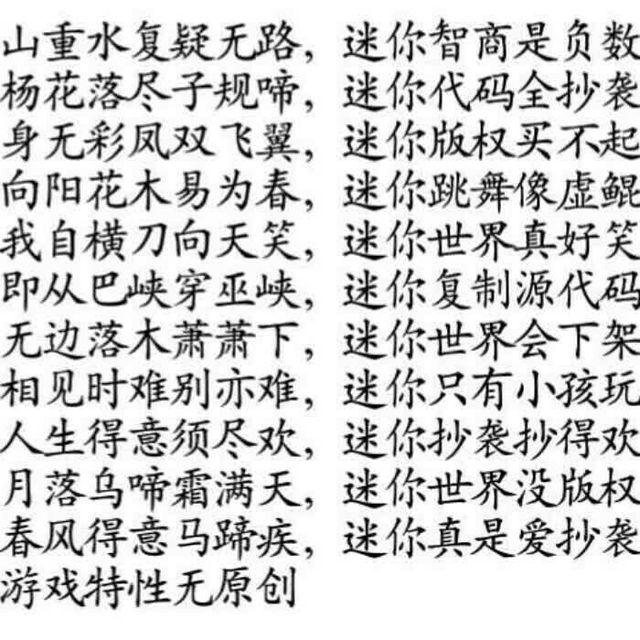 山重水复疑无路，迷你智商是负数
杨花落尽子规啼，迷你代码全抄袭
身无彩凤双飞翼，迷你版权买不起
向阳花木易为春，迷你跳舞像虚鲲
我自横刀向天笑，迷你世界真好笑
即从巴峡穿巫峡，迷你复制源代码
无边落木萧萧下，迷你世界会下架
相见时难别亦难，迷你只有小孩玩
人生得意须尽欢，迷你抄袭抄得欢
月落乌啼霜满天，迷你世界没版权
春风得意马蹄疾，迷你真是爱抄袭
游戏特性无原创